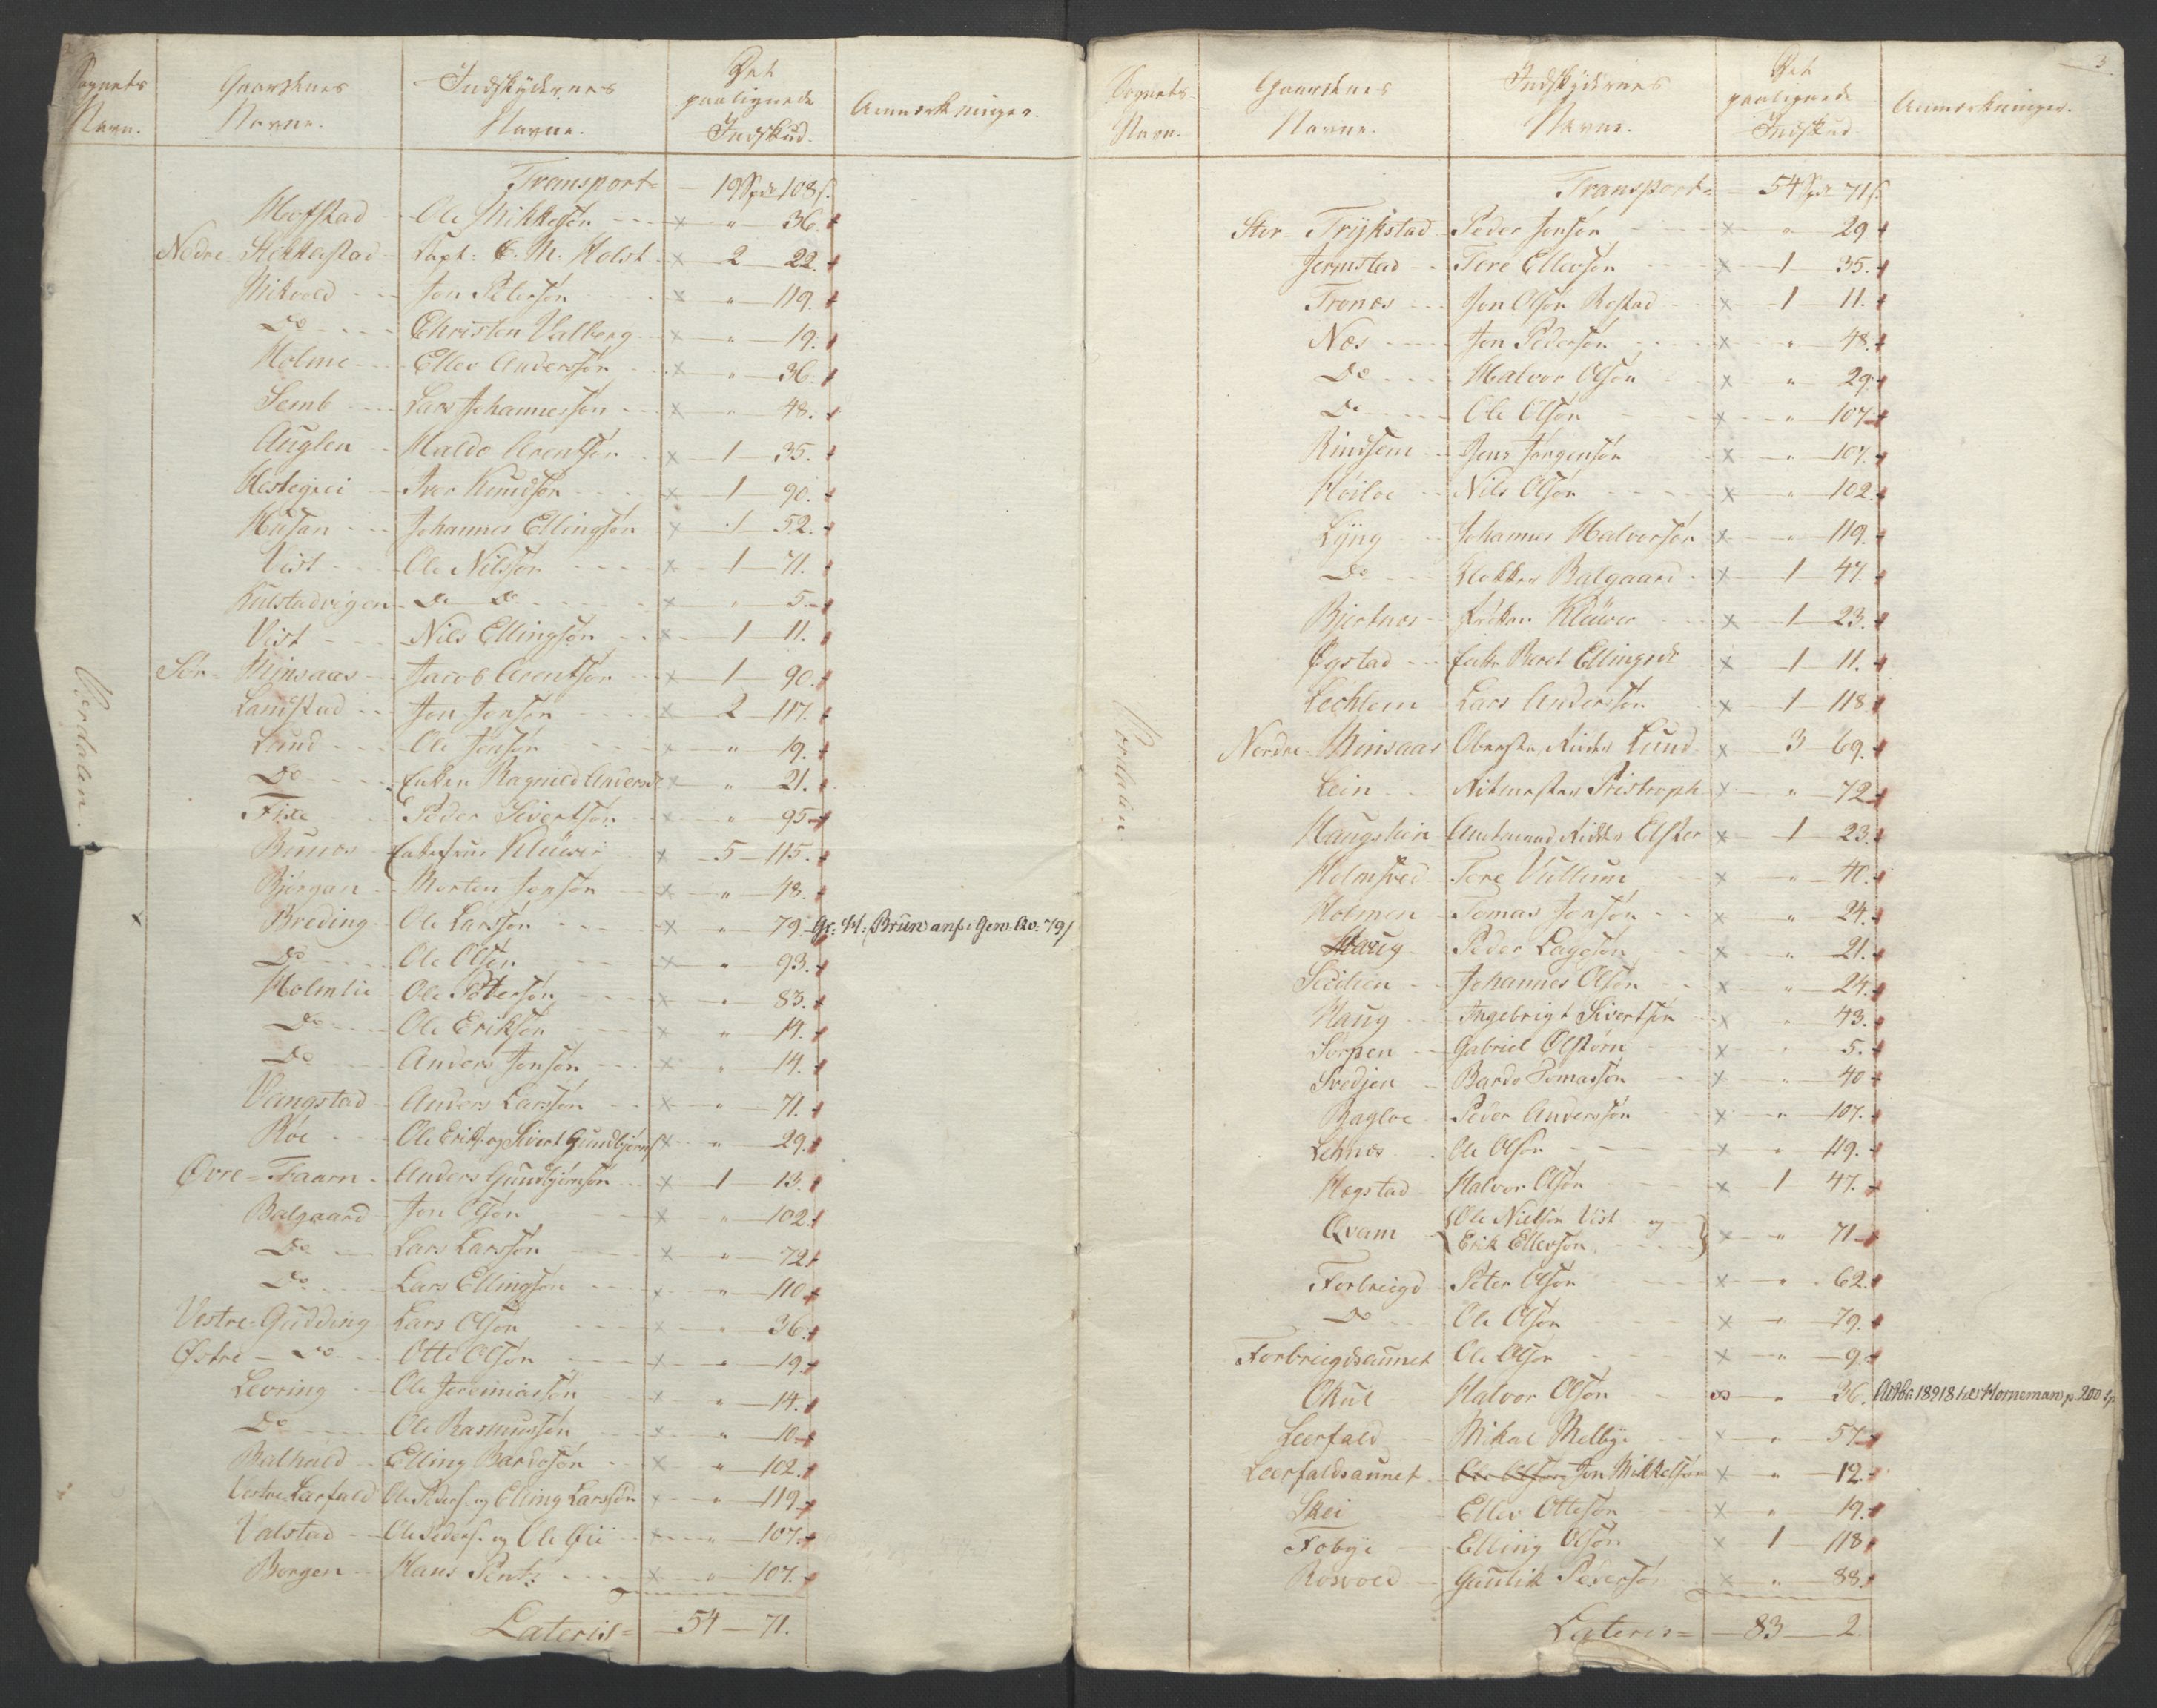 Sognets Navn. Gaardenes Navne. Indskydernes Navne. Det paalignede Indskud. Anmærkninger.
Værdalen.
Transport= 19 Spd 108 s.
Hofstad Ole Mikkelsøn x " 36.
Nedre Stikkelstad Capt: E. M. Holst x 2 22.
Mikvold Jon Petersøn x " 119.
Do Christen Valberg x " 19.
Holme Ellev Anderssøn x " 36.
Semb Lars Johannessøn x " 48.
Auglen Haldo Arentsøn x 1 35.
Hestegrei Iver Knudsøn x 1 90.
Husan Johannes Ellingsøn x 1 52.
Vist Ole Nilssøn x 1 71.
Kulstadvigen Do Do x " 5.
Vist Nils Ellingsøn x 1 11.
Sør- Minsaas Jacob Arentsøn x 1 90.
Landstad Jon Jonsøn x 2 117.
Lund Ole Jonsøn x " 19.
Do Enken Ragnild Andersdr x " 21.
Fixe Peder Sivertsøn x " 95
Bunes Enkefrue Klüwer x 5 115.
Bjørgan Morten Jonsøn x " 48.
Breding Ole Larssøn x " 79. Gr: H: Brun anf: i Gen. Av: 79/
Do Ole Olsøn x " 93.
Holmlie Ole Petersøn x " 83.
Do Ole Eriksøn x " 14.
Do Anders Jonsøn x " 14.
Vangstad Anders Larssøn x " 71.
Røe Ole Erik: og Sivert Gundbjørns x " 29.
Øvre= Faarn Anders Gundbjørnsøn x 1 13.
Balgaard Jon Olsøn x " 102.
Do Lars Larssøn x " 72
Do Lars Ellingsøn x " 110
Vestre- Gudding Lars Olsøn x " 36.
Østre - Do Otte Olsøn x " 19
Levring Ole Jeremiassøn x " 14.
Do Ole Rasmussøn x " 10.
Balhald Elling Bardosøn x " 102.
Vestre Lærfald Ole Peders: og Elling Larssøn x " 119.
Valstad Ole Peders: og Ole x " 107.
Borgen Hans Pentz x " 107.
Lateris= 54 71.
3.
Sognets Navn. Gaardenes Navne. Indskydernes Navne. Det paalignede Indskud. Anmærkninger.
Værdalen
Transport= 54 Spd 71 s.
Stor- Trÿkstad Peder Jonsøn x " 29
Jermstad Tore Ellevsøn x 1 35.
Trones Jon Olsøn Rostad x 1 11.
Næs Jon Pedersøn x " 48.
Do Halvor Olsøn x " 29
Do Ole Olsøn x " 107
Rindsem Jens Jørgensøn x " 107.
Høiloe Nils Olsøn x " 102.
Lÿng Johannes Halvorsøn x " 119.
Do Klokker Balgaard x 1 47.
Bjertnæs Frøken Klüwer x 1 23.
Øgstad Enke Beret Ellingsdr x 1 11.
Leehlem Lars Anderssøn x 1 118.
Nordre- Minsaas Oberste, Ridder Lund x 3 69.
Lein Ritmester Tristroph x " 72
Haugskin Amtmand Ridder Elster x 1 23.
Holmsved Tore Vullum x " 40.
Holmen Tomas Jonsøn x " 24.
Haug Peder Lagesøn x " 21.
Scilien Johannes Olsøn x " 24.
Haug Ingebrigt Sivertsøn x " 43.
Sørpen Gabriel Olstørn x " 5.
Svedjen Bardo Tomassøn x " 40
Ragloe Peder Anderssøn x " 107.
Leknes Ole Olsøn x " 119.
Hegstad Halvor Olsøn x 1 47.
Qvam Ole Nielsøn Vist og
Erik Ellevsøn x " 71
Forbregd Peter Olsøn x " 62.
Do Ole Olsøn x " 79.
Forbregdsaunet Ole Olsøn x " 9.
Okul Halvor Olsøn " 36. 1818 hos Horneman p. 200 sp
Leerfald Mikal Melbye x " 57.
Leerfaldsaunet Ole Olsøn Jon Mikkelsøn x " 12.
Skei Ellev Ottesøn x " 19.
Fobye Elling Olsøn x 1 118
Rosvold Gunlik Pedersøn x " 88.
Lateris= 83 2.